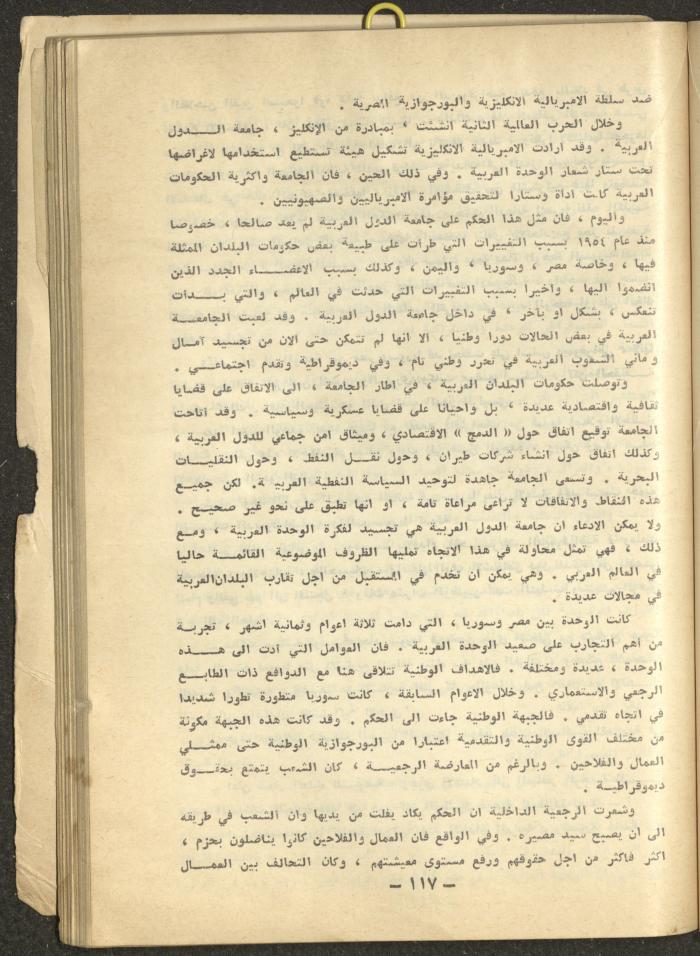 ضد سلطة الامبريالية الانكليزية والبورجوازية المصرية .
وخلال الحرب العالمية الثانية انشئت ، بمبادرة من الإنكليز ، جامعة الـــدول
العربية . وقد ارادت الامبريالية الانكليزية تشكيل هيئة تستطيع استخدامها لاغراضها
تحت ستار شعار الوحدة العربية . وفي ذلك الحين ، فان الجامعة واكثرية الحكومات
العربية كانت اداة وستارا لتحقيق مؤامرة الامبرياليين والصهيونيين .
واليوم ، فان مثل هذا الحكم على جامعة الدول العربية لم يعد صالحا ، خصوصا
منذ عام ١٩٥٤ بسبب التغييرات التي طرأت على طبيعة بعض حكومات البلدان الممثلة
فيها ، وخاصة مصر ، وسوريا ، واليمن ، وكذلك بسبب الاعضـــاء الجدد الذين
انضموا اليها ، واخيرا بسبب التغييرات التي حدثت في العالم ، والتي بـــدأت
تنعكس ، بشكل او بآخر ، في داخل جامعة الدول العربية . وقد لعبت الجامعـــة
العربية في بعض الحالات دورا وطنيا ، الا انها لم تتمكن حتى الان من تجسيد آمـال
و ماني الشعوب العربية في تحرر وطني تام ، وفي ديموقراطية وتقدم اجتماعـــي .
وتوصلت حكومات البلدان العربية ، في اطار الجامعة ، الى الاتفاق على قضايا
ثقافية واقتصادية عديدة ، بل واحيانا على قضايا عسكرية وسياسية . وقد اتاحت
الجامعة توقيع اتفاق حول « الدمج » الاقتصادي ، وميثاق امن جماعي للدول العربية ،
وكذلك اتفاق حول انشاء شركات طيران ، وحول نقـــل النفط ، وحول النقليـــات
البحرية . وتسعى الجامعة جاهدة لتوحيد السياسة النفطية العربيـة . لكن جميـع
هذه النقاط والاتفاقات لا تراعى مراعاة تامة ، او انها تطبق على نحو غير صحيـح .
ولا يمكن الادعاء ان جامعة الدول العربية هي تجسيد لفكرة الوحدة العربية ، ومـع
ذلك ، فهي تمثل محاولة في هذا الاتجاه تمليها الظروف الموضوعية القائمـــة حاليا
في العالم العربي . وهي يمكن ان تخدم في المستقبل من اجل تقارب البلدان العربية
في مجالات عديدة .
كانت الوحدة بين مصر وسوريا ، التي دامت ثلاثة اعوام وثمانية اشهر ، تجربـة
من اهم التجارب على صعيد الوحدة العربية . فان العوامل التي ادت الى هـــذه
الوحدة ، عديدة ومختلفة . فالاهداف الوطنية تتلاقى هنا مع الدوافع ذات الطابـــع
الرجعي والاستعماري . وخلال الاعوام السابقة ، كانت سوريا متطورة تطورا شديدا
في اتجاه تقدمي . فالجبهة الوطنية جاءت الى الحكم . وقد كانت هذه الجبهة مكونة
من مختلف القوى الوطنية والتقدمية اعتبارا من البورجوازية الوطنية حتى ممثـــلي
العمال والفلاحين . وبالرغم من المعارضة الرجعيـــة ، كان الشعب يتمتع بحقـــوق
ديموقراطيـــة .
وشعرت الرجعية الداخلية ان الحكم يكاد يفلت من يديها وان الشعب في طريقه
الى ان يصبح سيد مصيره . وفي الواقع فان العمال والفلاحين كانوا يناضلون بحزم ،
اكثر فاكثر من اجل حقوقهم ورفع مستوى معيشتهم ، وكان التحالف بين العمـــال
– ١١٧ –